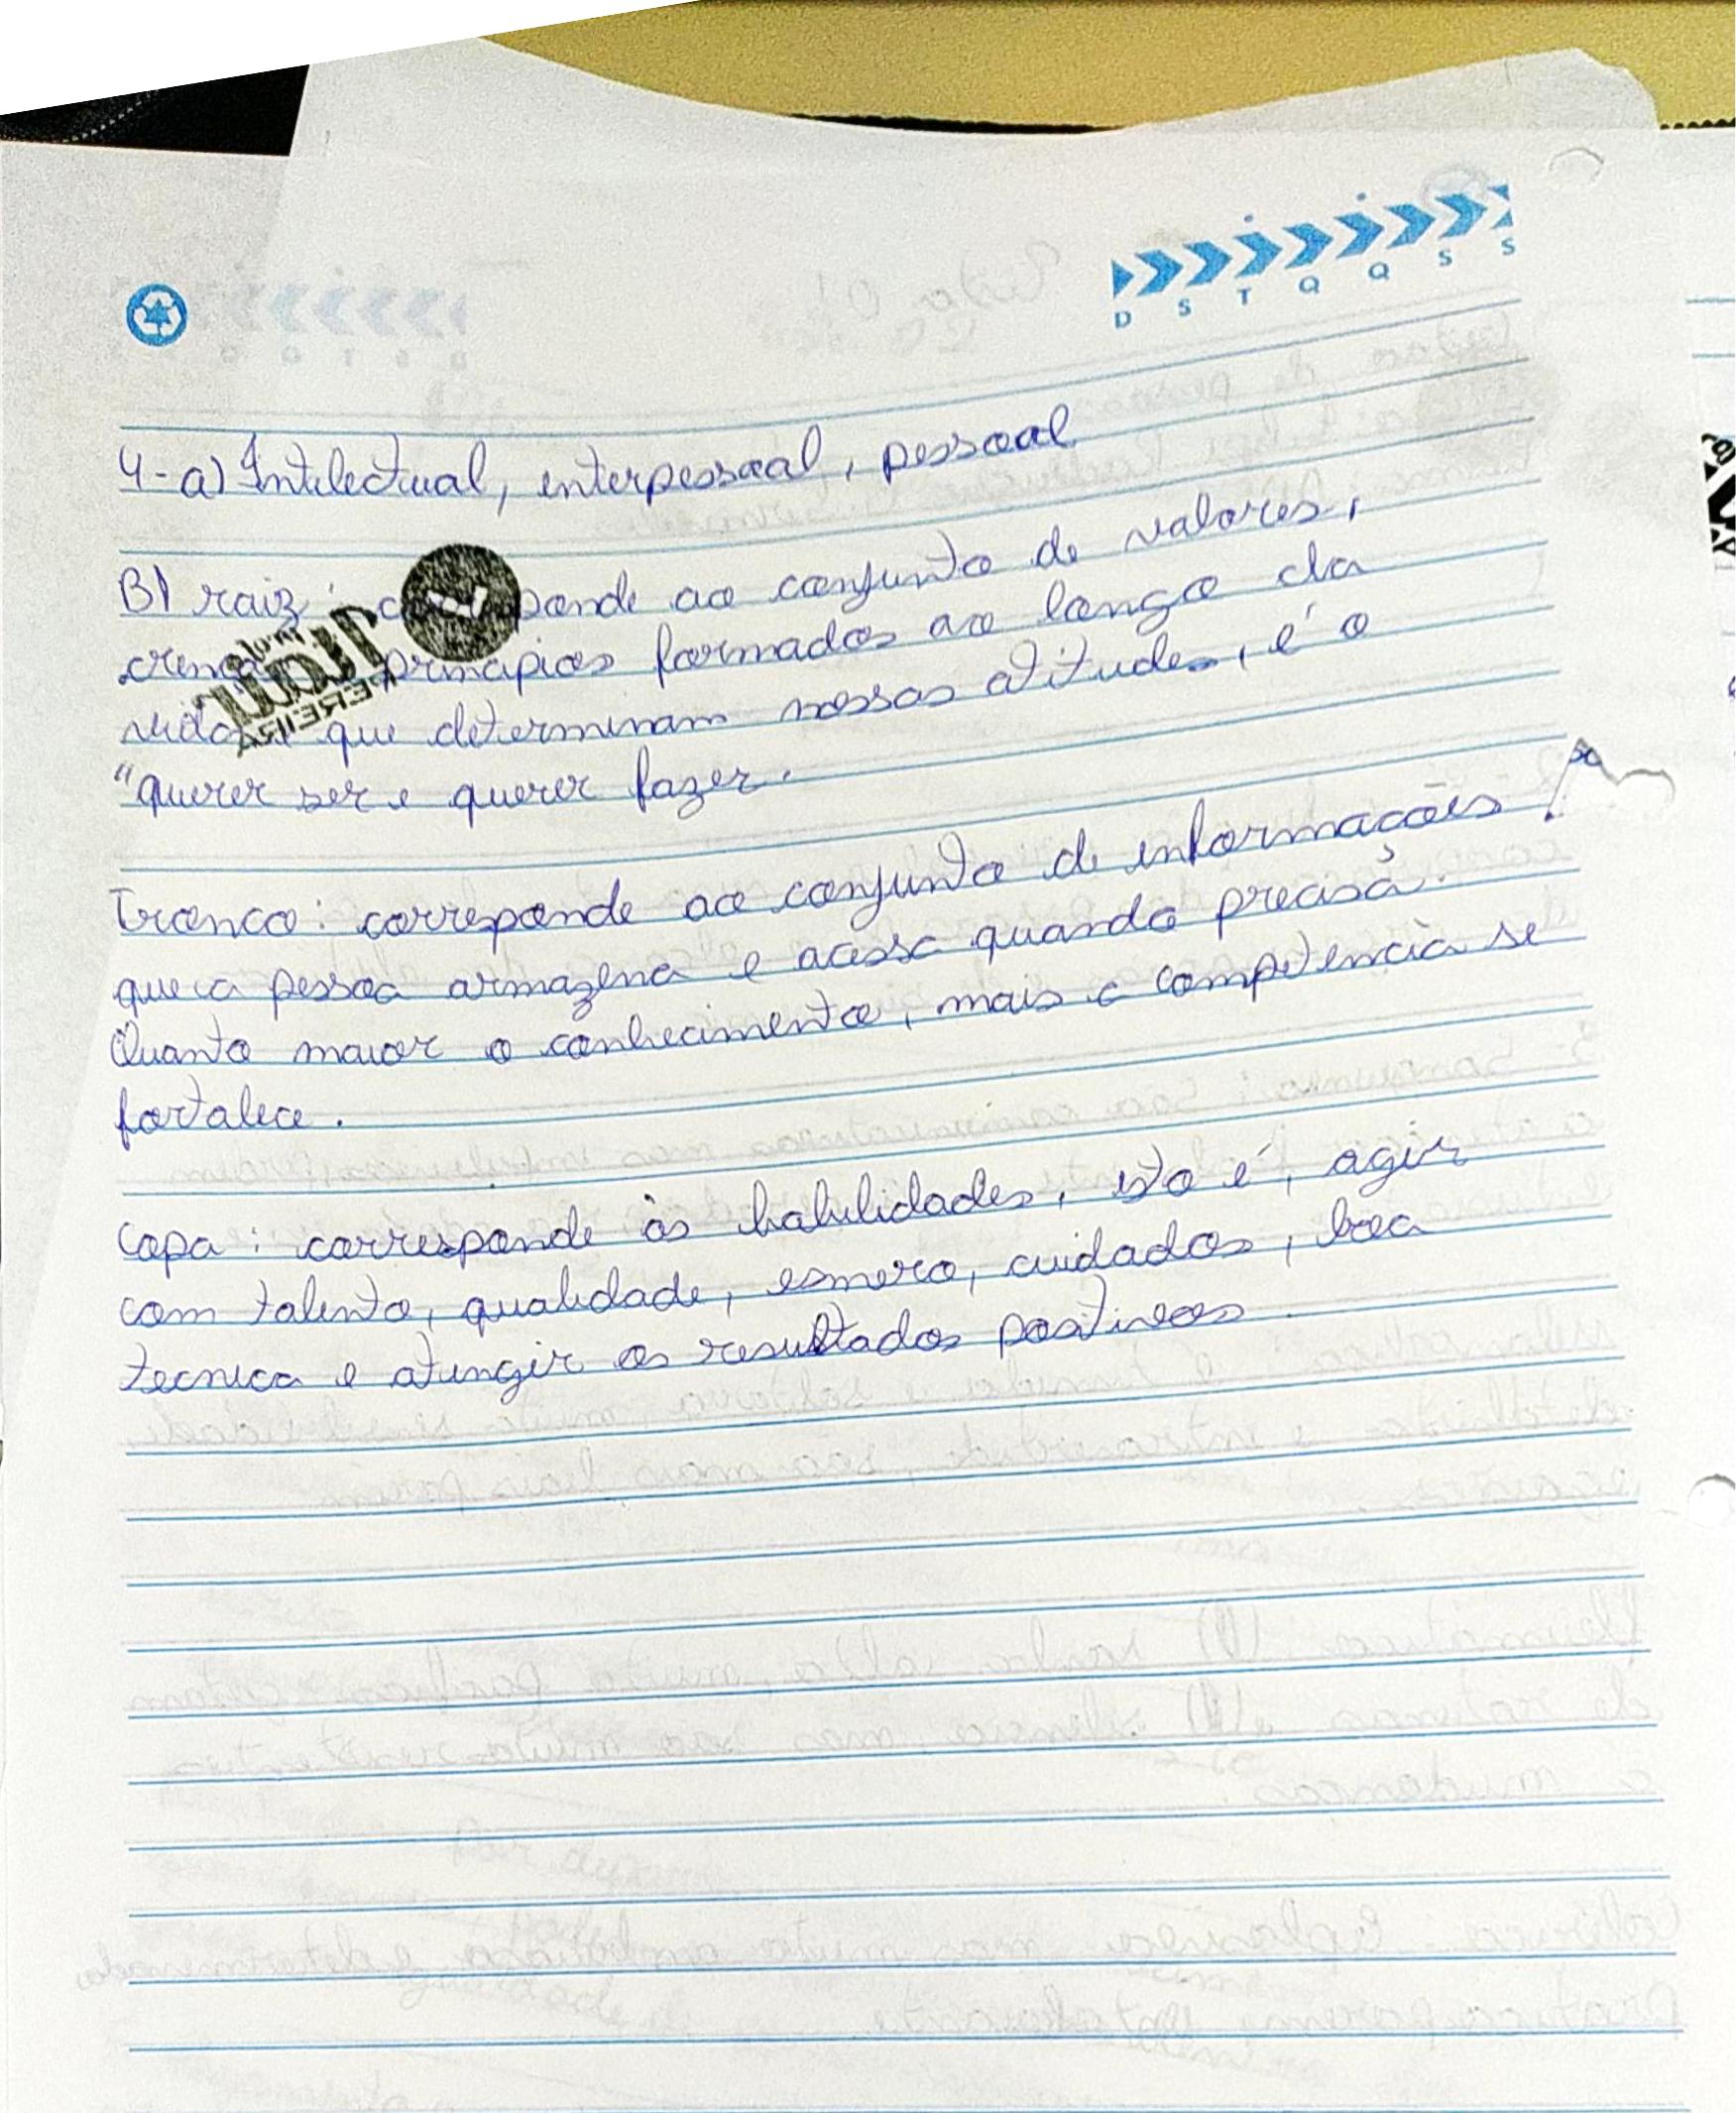 D S T Q Q S S
4-a) Intelectual, interpessoal, pessoal
B) raiz: ponde ao conjunto de valores,
princípios formados ao longo da
que determinam nossas atitudes, é o
"querer ser e querer fazer.
Tronco: correponde ao conjunto de informações
que a pessoa armazena e acessa quando precisa.
Quanto maior o conhecimento, mais a competência se
fortalece.
Copa: corresponde às habilidades, isto é, agir
com talento, qualidade, esmero, cuidados, boa
tecnica e atingir os resultados positivos.